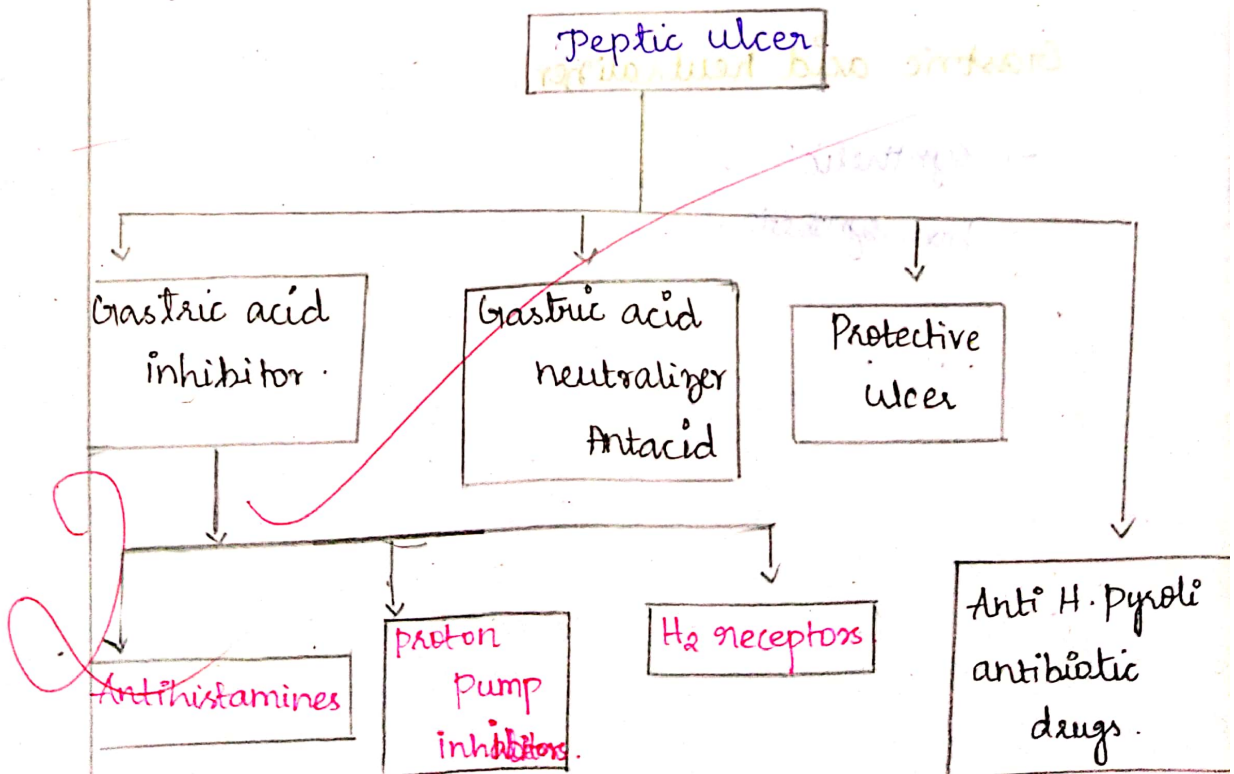 Peptic ulcer
Gastric acid
inhibitor.
Gastric acid
neutralizer
Antacid
Protective
ulcer
Antihistamines
proton
pump
inhibitors.
H2 receptors
Anti H. Pyroli
antibiotic
drugs.